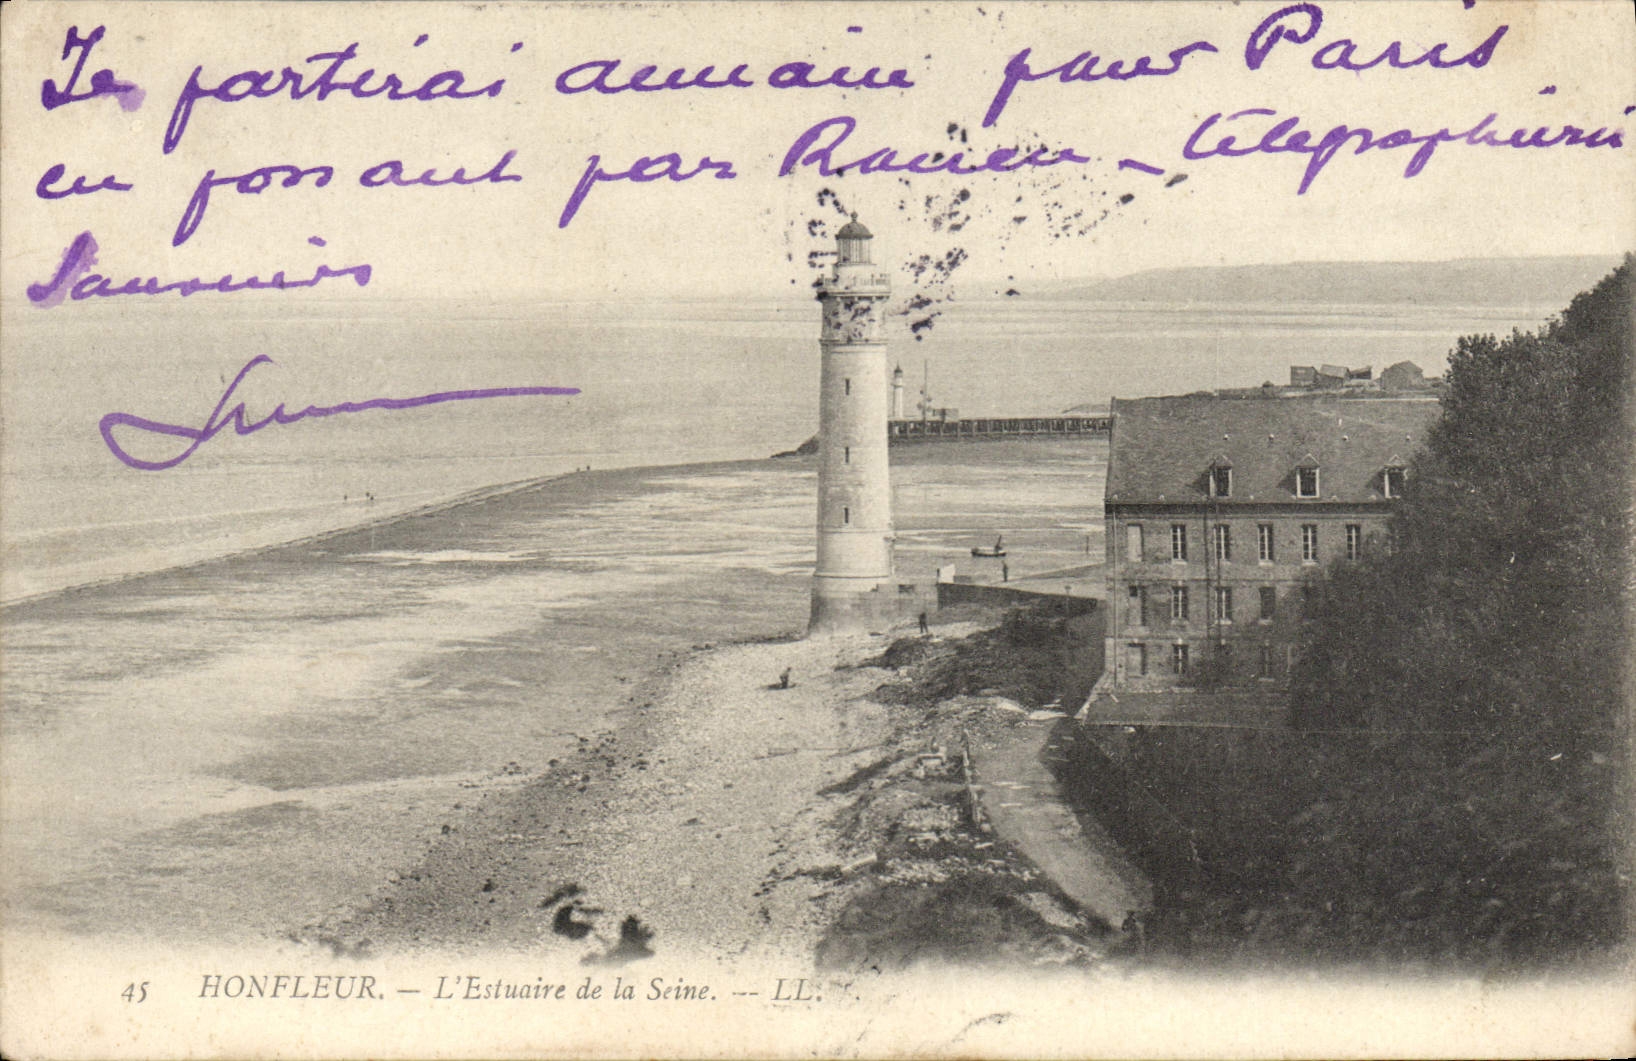 Je partirai demain pour Paris
en passant par Rouen _ télégraphierai
Souvenirs
45 HONFLEUR. — L'Estuaire de la Seine. — LL.